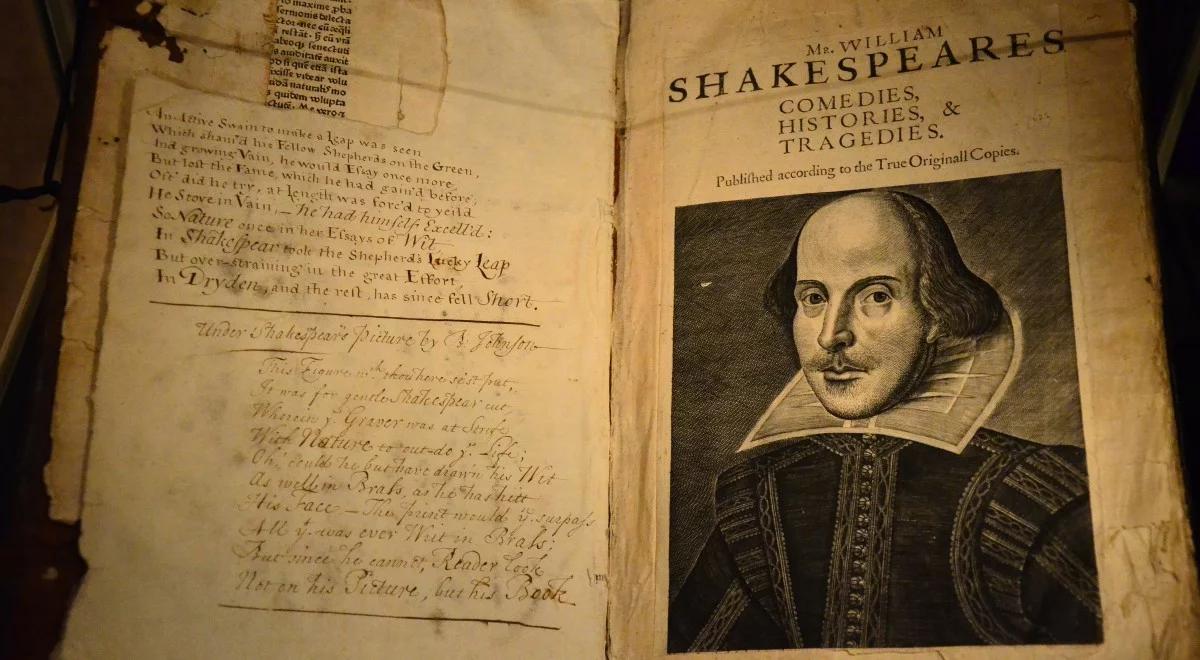 o maxime p̱ba
sermonis delecta
ctor nec
restat.
abeoq; senectuti
auiditatē auxit
q̄ etiā ista
xisse videar volu
naturalis mo
quidem volupta
An Active Swain to make a Leap was seen
Which sham'd his Fellow Shepherds on the Green,
And growing Vain, he would Essay once more,
But lost the Fame, which he had gain'd before;
Oft' did he try, at Length was forc'd to yeild
He Strove in Vain, — he had himself Excell'd:
So Nature once in her Essays of Wit
In Shakespear took the Shepherd's Lucky Leap
But over-straining in the great Effort,
In Dryden, and the rest, has since fell Short.
Under Shakespears Picture by B: Johnson
This Figure wch. thou here se'st put,
It was for gentle Shakespear cut,
Wherein ye. Graver was at Strife
With Nature to out-do ye. Life;
Oh! could he but have drawn his Wit
As well in Brass, as he has hitt
His Face — The print would yn. surpass
All yt. was ever Writ in Brass:
But since he cannot, Reader look
Not on his Picture, but his Book.
Mr. WILLIAM
SHAKESPEARES
COMEDIES,
HISTORIES, &
TRAGEDIES.
Published according to the True Originall Copies.